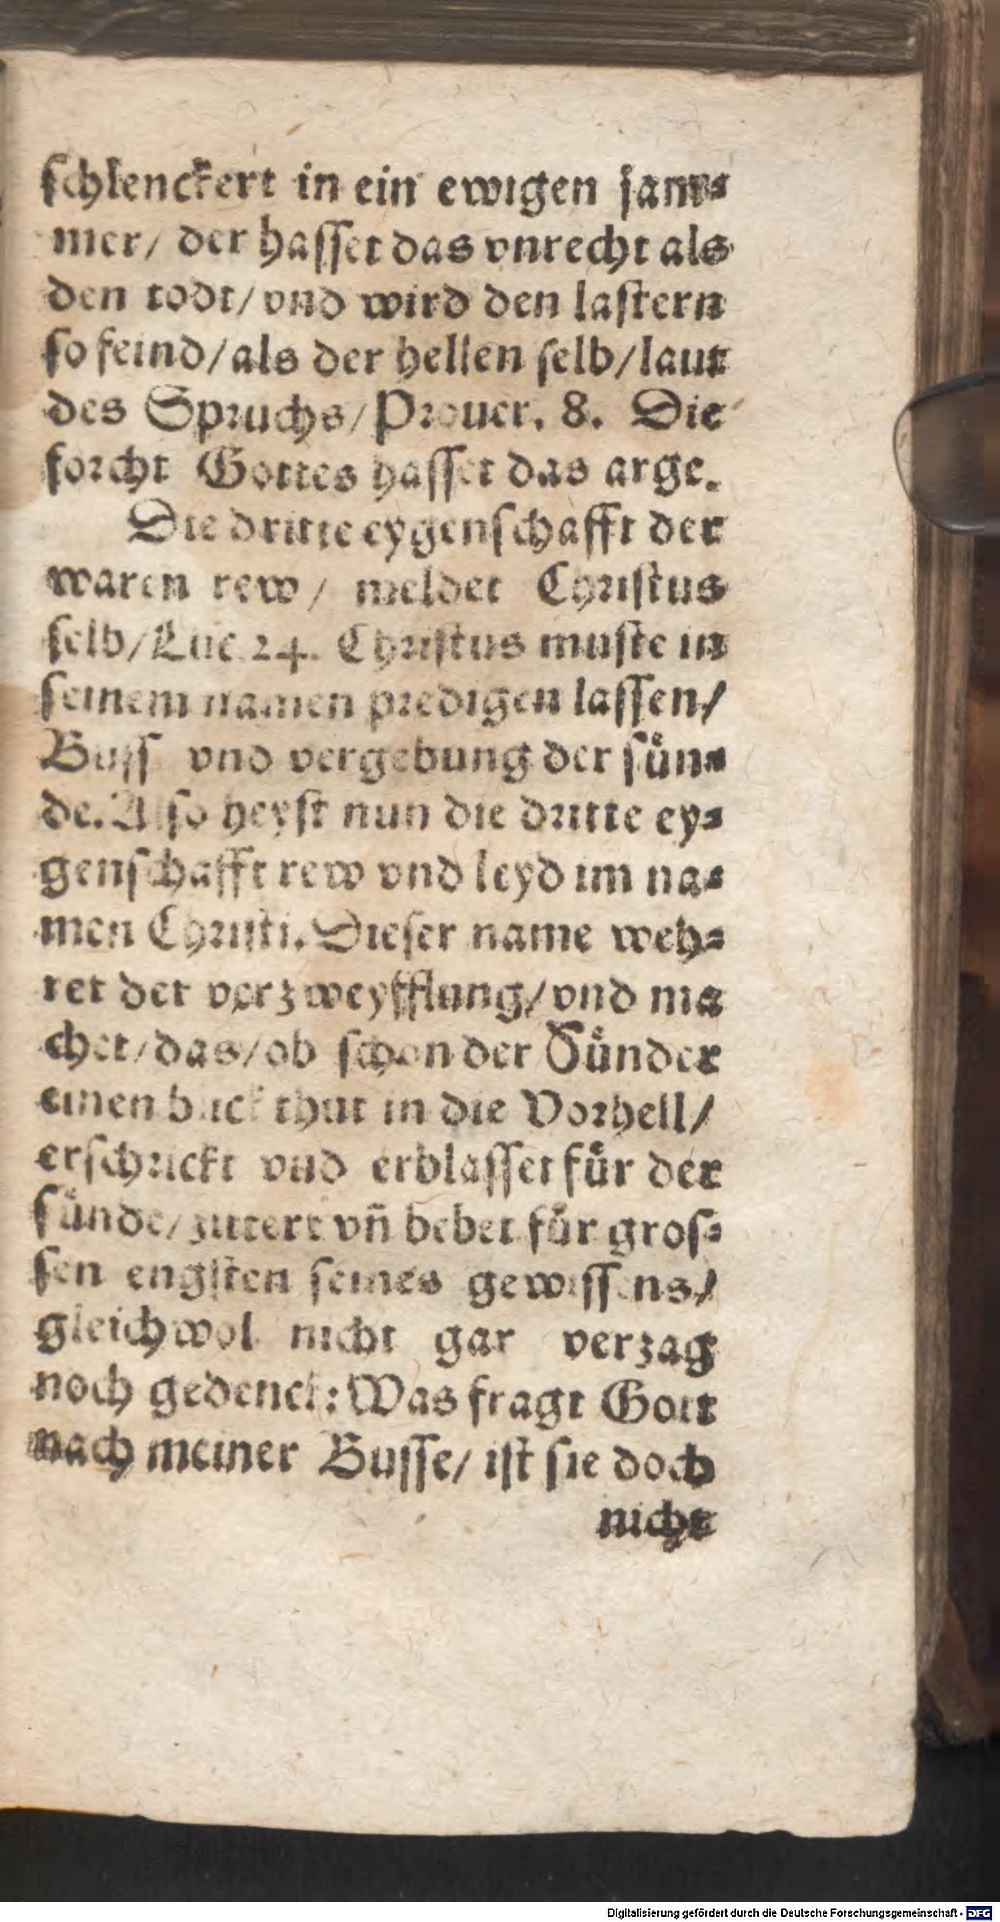 ſchlenckert in ein ewigen jam⸗
mer/ der haſſet das vnrecht als
den todt/ vnd wird den laſtern
ſo feind/ als der hellen ſelb/ laut
des Spruchs/ Prouer. 8. Die
forcht Gottes haſſet das arge.
Die dritte eygenſchafft der
waren rew/ meldet Chriſtus
ſelb/ Luc. 24. Chriſtus muſte in
ſeinem namen predigen laſſen/
Buſſ vnd vergebung der ſün⸗
de. Alſo heyſt nun die dritte ey⸗
genſchafft rew vnd leyd im na⸗
men Chriſti. Dieſer name weh⸗
ret der verzweyfflung/ vnd ma
chet/ das/ ob ſchon der Sünder
einen blick thut in die Vorhell/
erſchrickt vnd erblaſſet für der
ſünde/ zittert vñ bebet für groſ⸗
ſen engſten ſeines gewiſſens/
gleichwol nicht gar verzag
noch gedenck: Was fragt Gott
nach meiner Buſſe/ iſt ſie doch
nicht
Digitalisierung gefördert durch die Deutsche Forschungsgemeinschaft - DFG